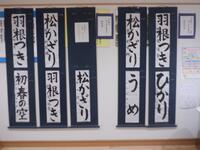 羽根つき
ひかり
松かざり
うめ
松かざり
松かざり
羽根つき
羽根つき
初春の空